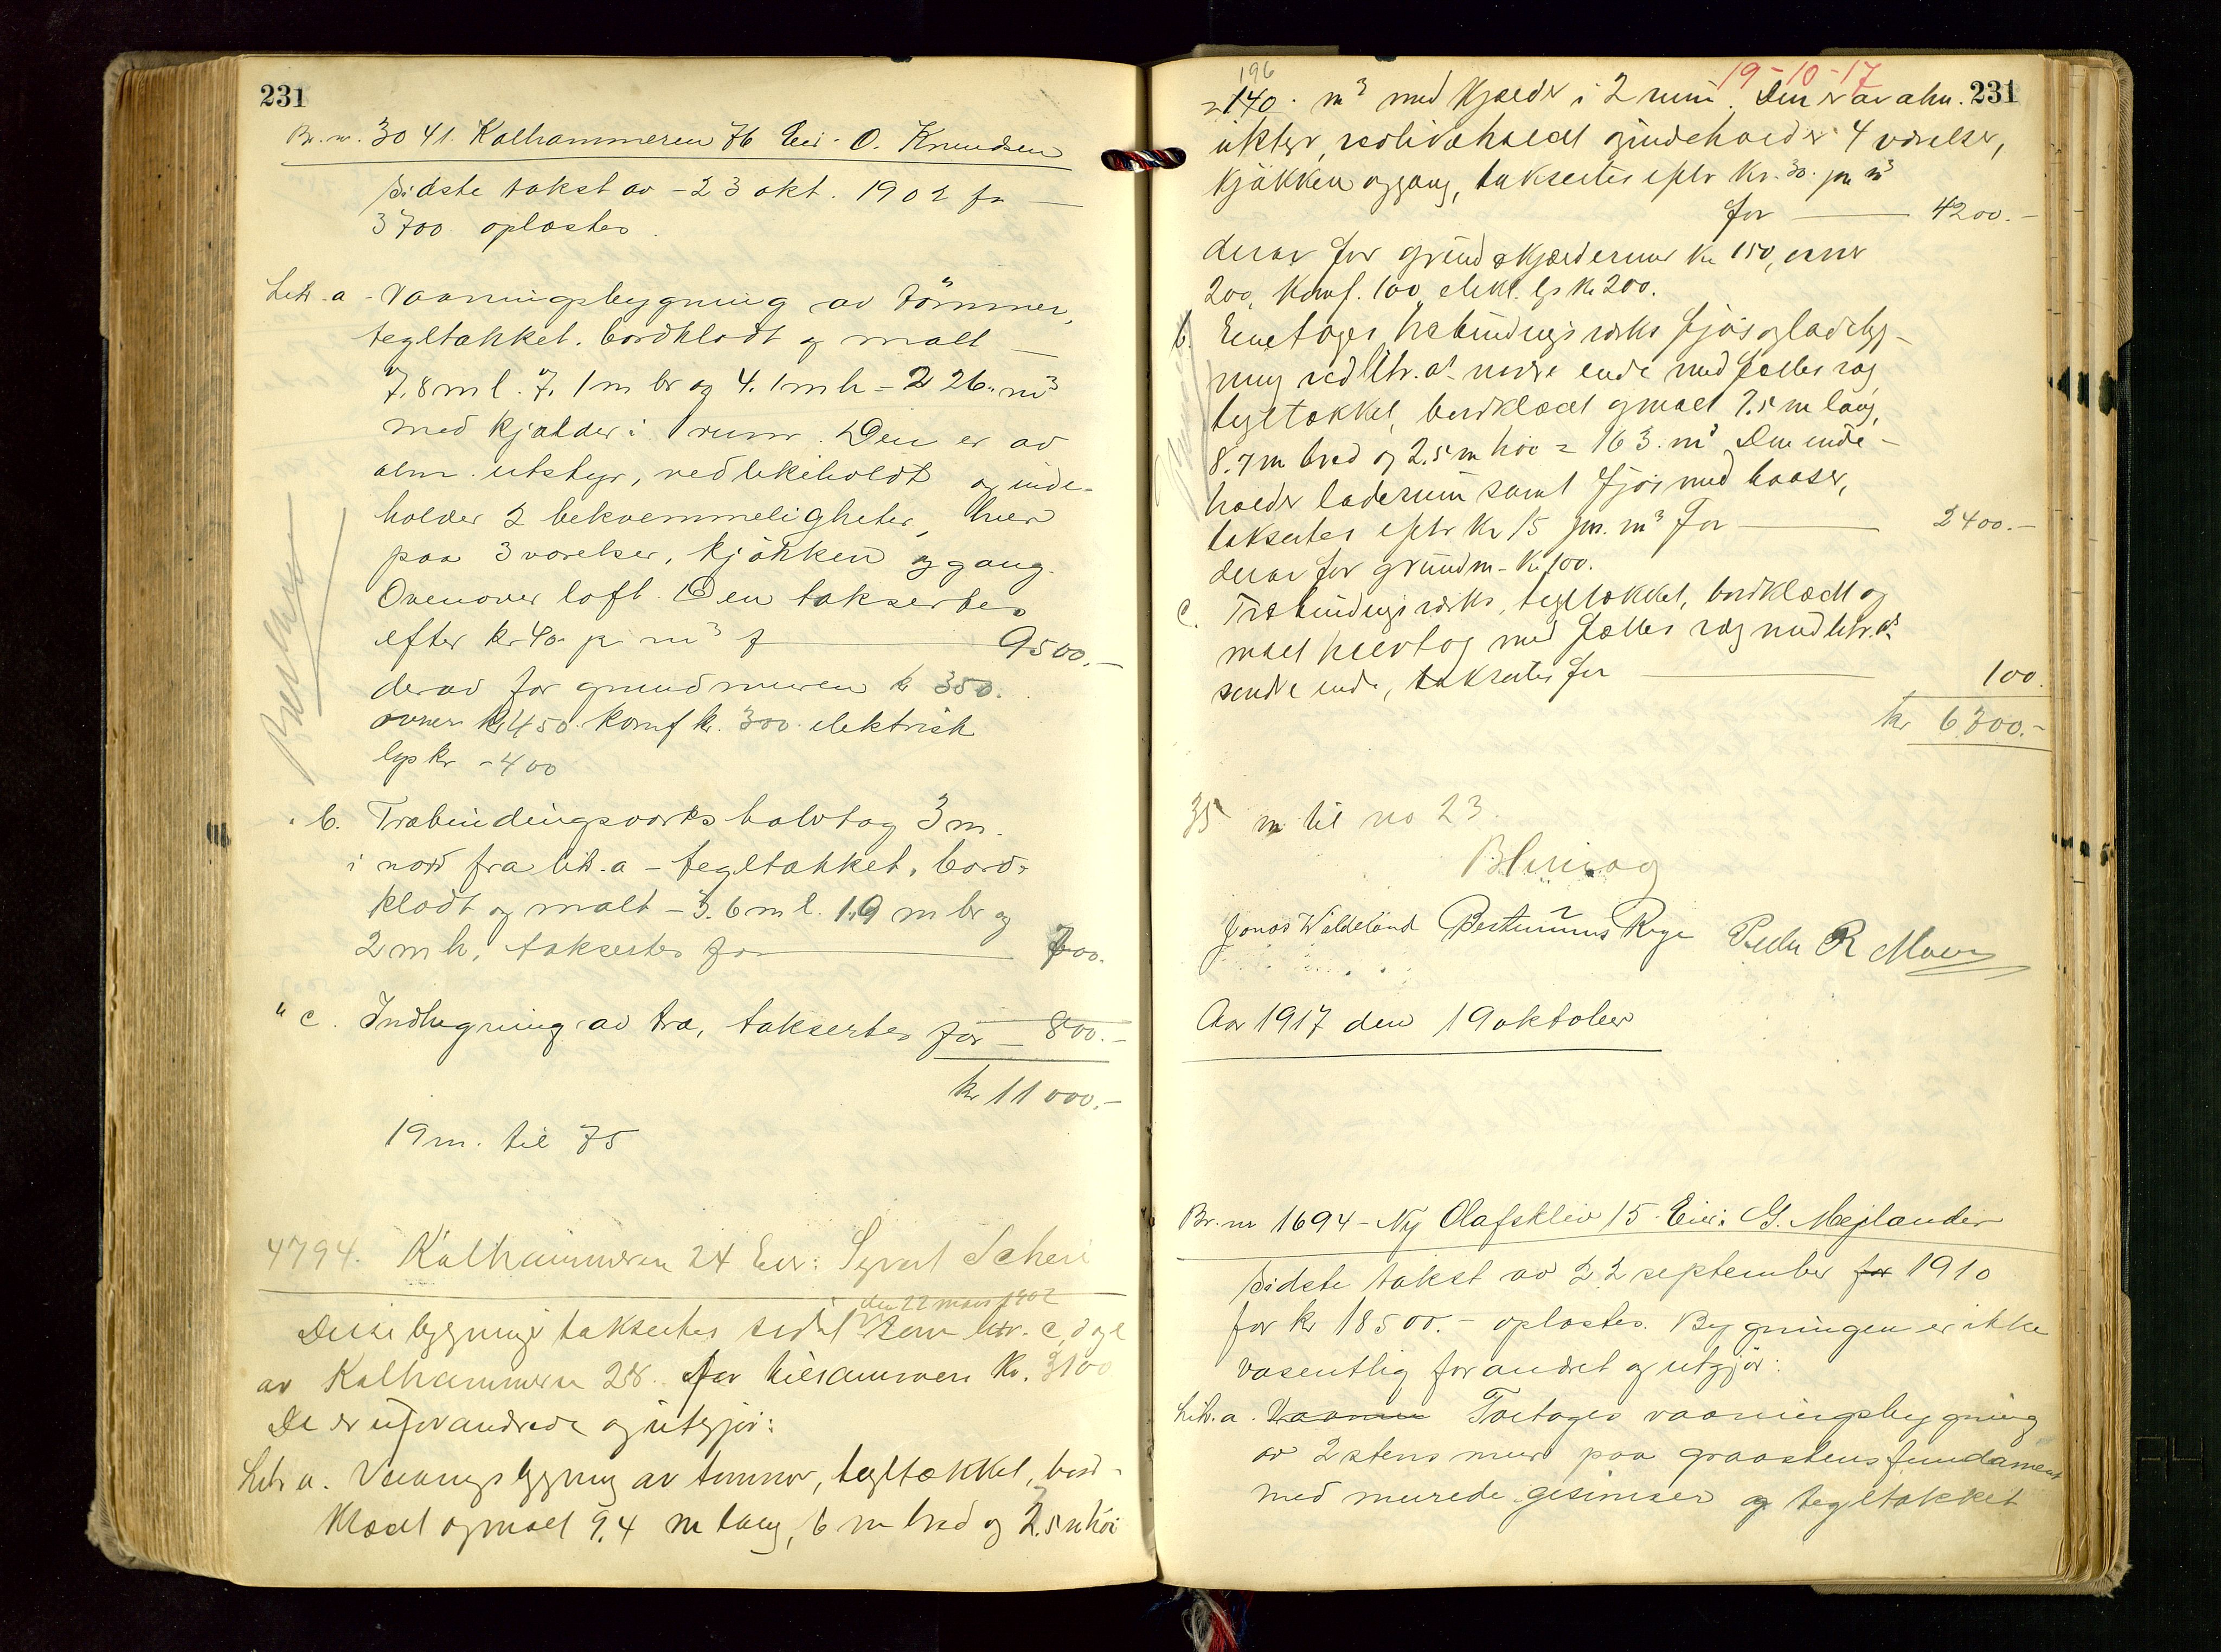 231
Br. nr. 3041. Kalhammeren 76 Eier: O. Knudsen
Sidste takst av - 23 okt. 1902 for
3700 oplæstes.
Litr. a - Vaaningsbygning av tömmer,
tegltækket. bordklædt og malt
7.8 m l. 7.1 m br og 4.1 m h = 226 m³
med kjælder i 1 rum. Den er av
alm. utstyr, vedlikeholdt og inde-
holder 2 bekvemmeligheter, hver
paa 3 værelser, kjökken og gang.
Ovenover loft. Den takseres
efter kr 40 pr m³ f 9500.-
derav for grundmuren kr 350.
ovner kr 450. komf kr. 300 elektrisk
lys kr - 400
" b. Træbindingsverks halvtag 3 m.
i nord fra litr. a - tegltækket, bord-
klædt og malt - 3.6 m l. 1.9 m br og
2 m h, takseres for 700.
" c. Indhegning av træ, takseres for 800.-
kr 11000.-
19 m. til 75
4794. Kalhammeren 24 Eier: Syvert Scheie
den 22 mars 1902
Disse bygninger takseertes sidst som litr. c, d og e
av Kalhammeren 28. for tilsammen Kr. 3100
De er uforandrede og utgjør:
Litr a. Vaaningsbygning av tømmer, tegltækket, bord-
klædt og malt 9.4 m lang, 6 m bred og 2.5 m høi
196 19-10-17
= 140. m³ med kjælder i 2 rum. Den er av alm. 231
utstyr, vedlikeholdt og indeholder 4 værelser,
kjøkken og gang, takseres efter Kr. 30. pr m³
for 4200.-
derav for grund & kjældermur Kr 150, ovner
200, Komf. 100, elekt. lys Kr 200.
b. Enetages træbindingsværks fjøs og ladebyg-
ning ved litr. a's nordre ende med fælles væg
tegltækket, bordklædt og malt 7.5 m lang,
8.7 m bred og 2.5 m høi = 163. m³ Den inde-
holder laderum samt fjøs med baaser,
takseres efter Kr 15 pr. m³ for 2400.-
derav for grundm - Kr 100.
c. Træbindingsværks, tegltækket, bordklædt og
malt halvtag med fælles væg med litr. a's
søndre ende, takseres for 100.
kr 6300.-
35 m til no 23.
Jonas Waldeland Bertinius Rege Peder R Moen
Aar 1917 den 19 oktober
Br. nr 1694 - Ny Olafsklev 15. Eier: G. Mejlænder
Sidste takst av 22 september for 1910
for kr 18500.- oplæstes. Bygningen er ikke
væsentlig forandret og utgjør:
Litr. a. Vaanin Toetages vaaningsbygning
av 2 stens mur paa graastensfundament
med murede gesimser og tegltækket